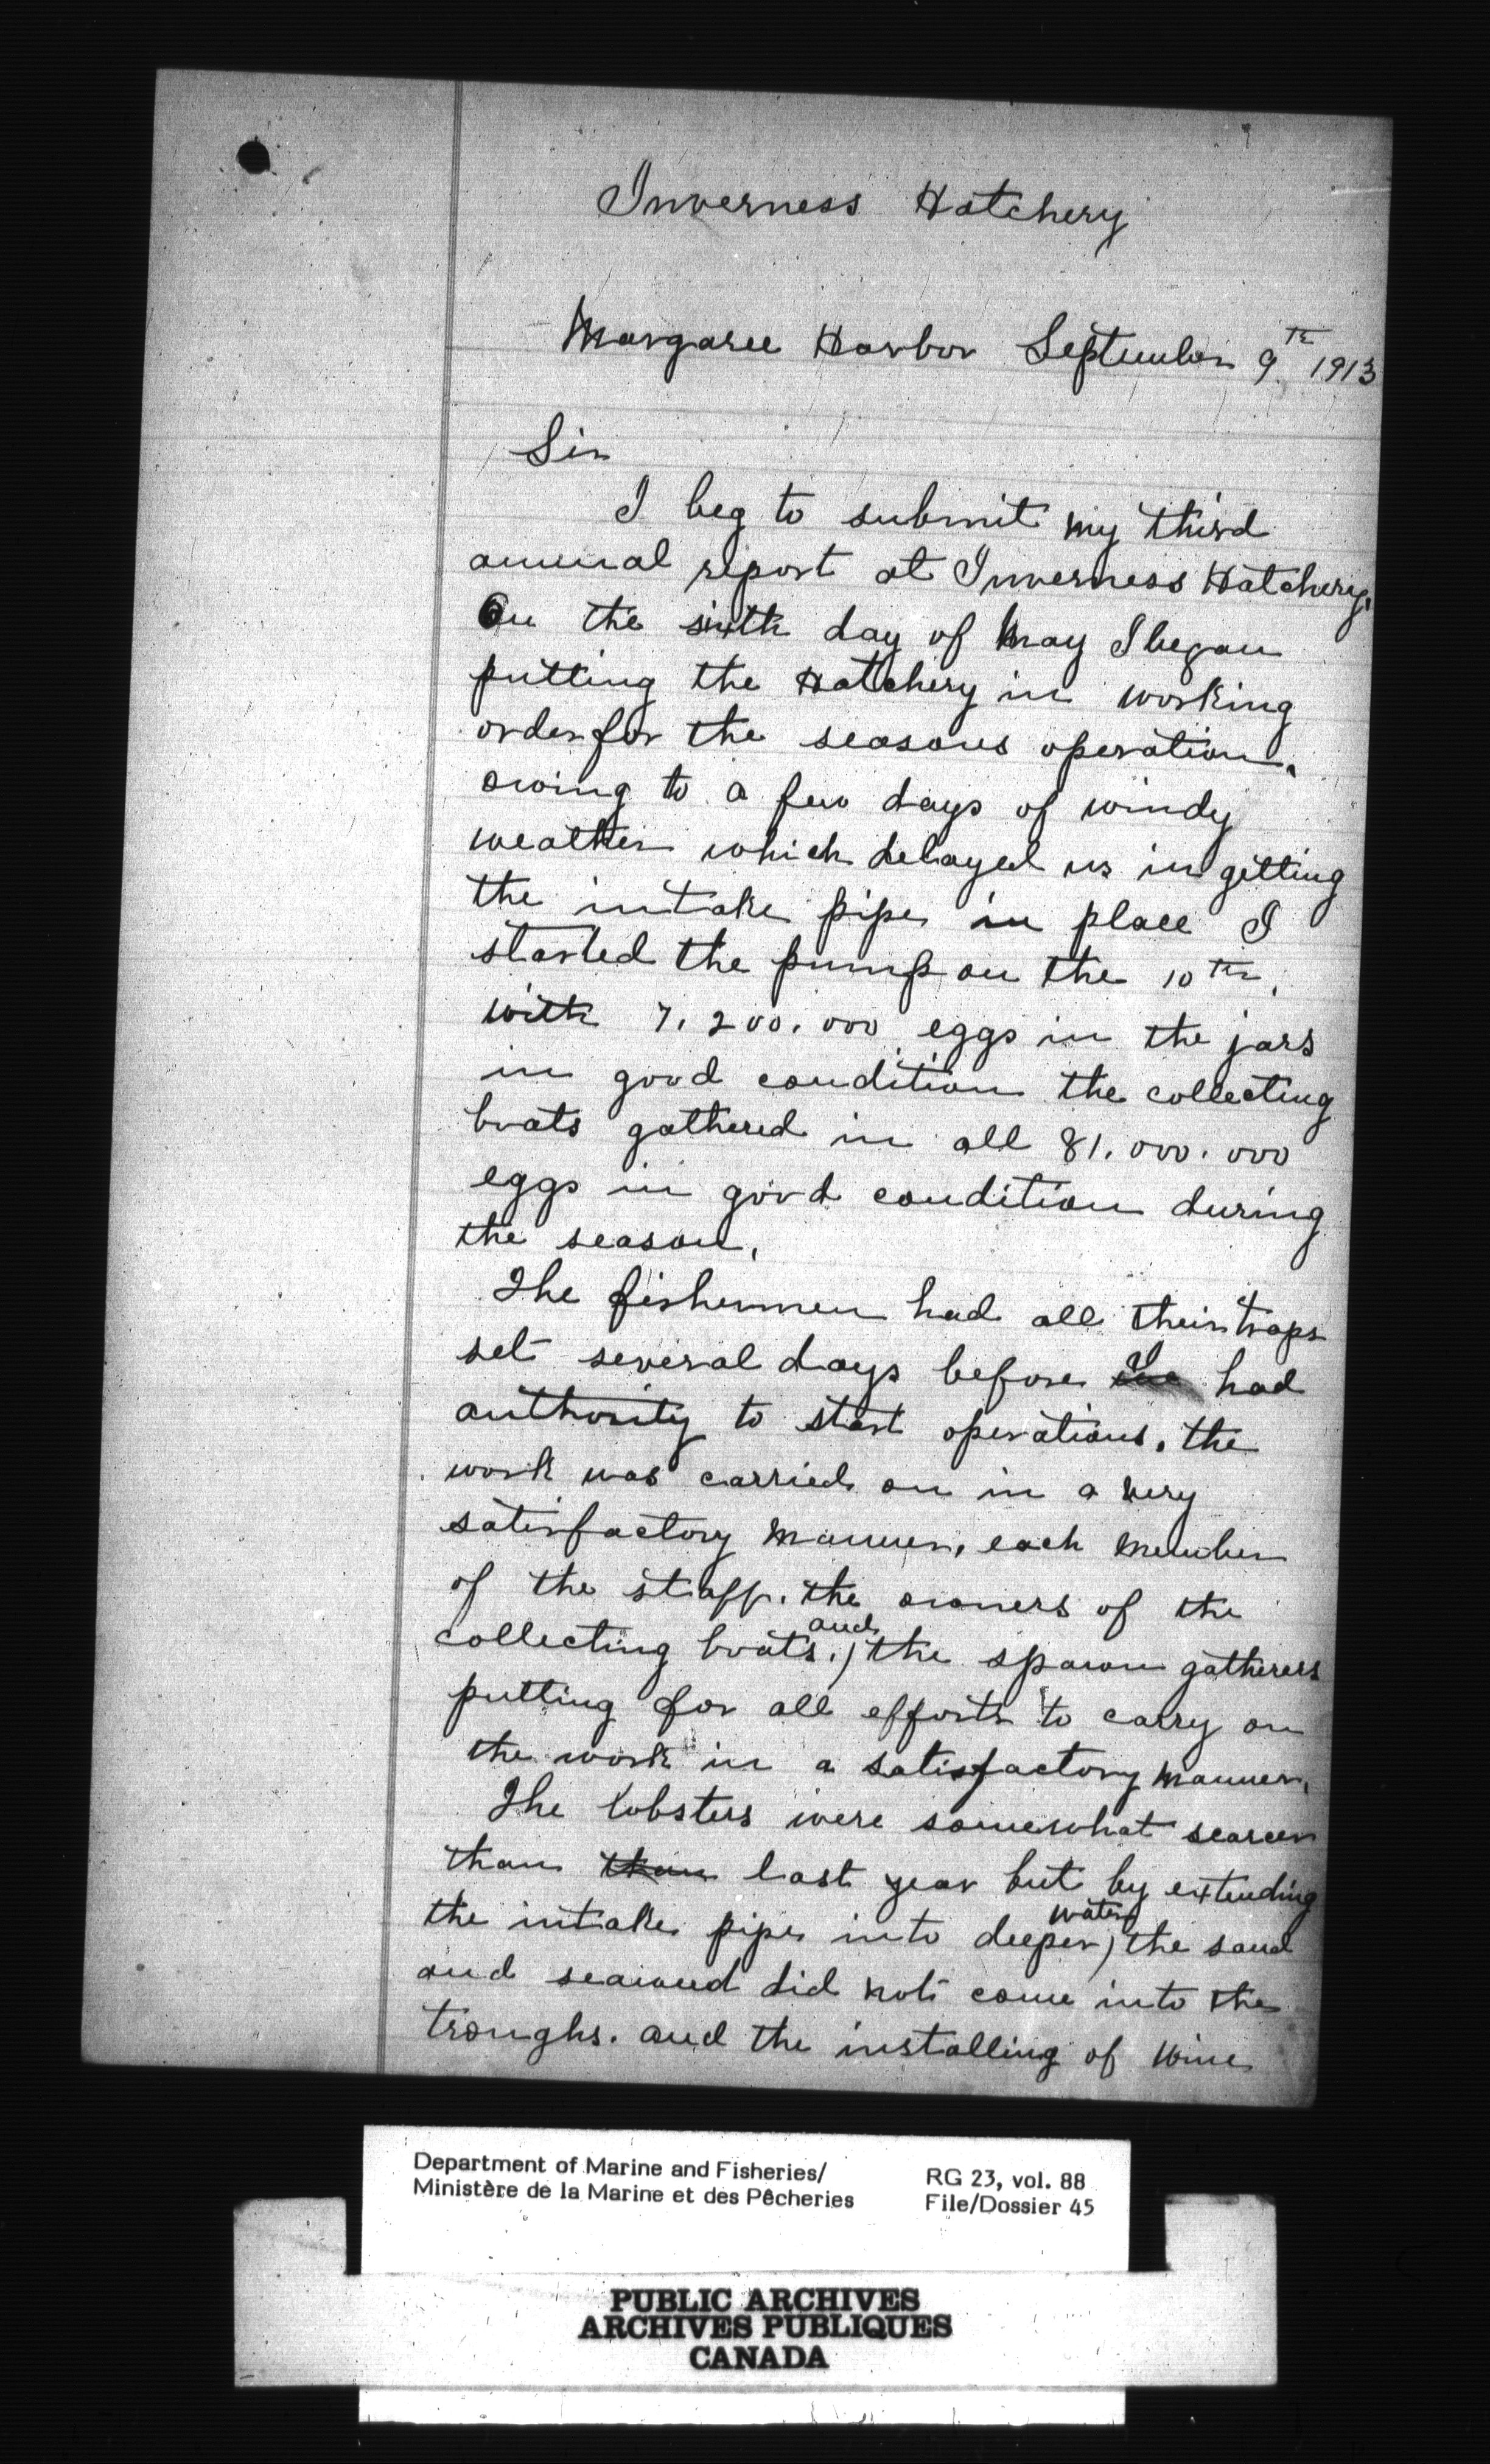 Inverness Hatchery
Margaree Harbor September 9th 1913
Sir
I beg to submit my third
annual report at Inverness Hatchery.
On the sixth day of May I began
putting the Hatchery in working
order for the seasons operation.
owing to a few days of windy
weather which delayed us in getting
the intake pipe in place I
started the pump on the 10th.
with 7.200.000 eggs in the jars
in good condition the collecting
boats gathered in all 81.000.000
eggs in good condition during
the season.
The fishermen had all their traps
set several days before I had
authority to start operations. the
work was carried on in a very
satisfactory manner, each member
of the staff. the owners of the
collecting boats. and the spawn gatherers
putting for all efforts to carry on
the work in a satisfactory manner.
The lobsters were somewhat scarcer
than than last year but by extending
the intake pipe into deeper water the sand
and seaweed did not come into the
troughs. and the installing of wire
Department of Marine and Fisheries/
Ministère de la Marine et des Pêcheries
RG 23, vol. 88
File/Dossier 45
PUBLIC ARCHIVES
ARCHIVES PUBLIQUES
CANADA